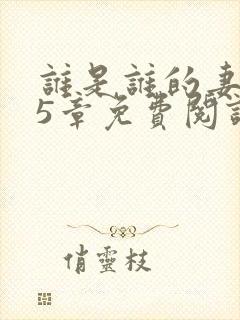 誰是誰的妻
5章免費閱讀
俏靈枝